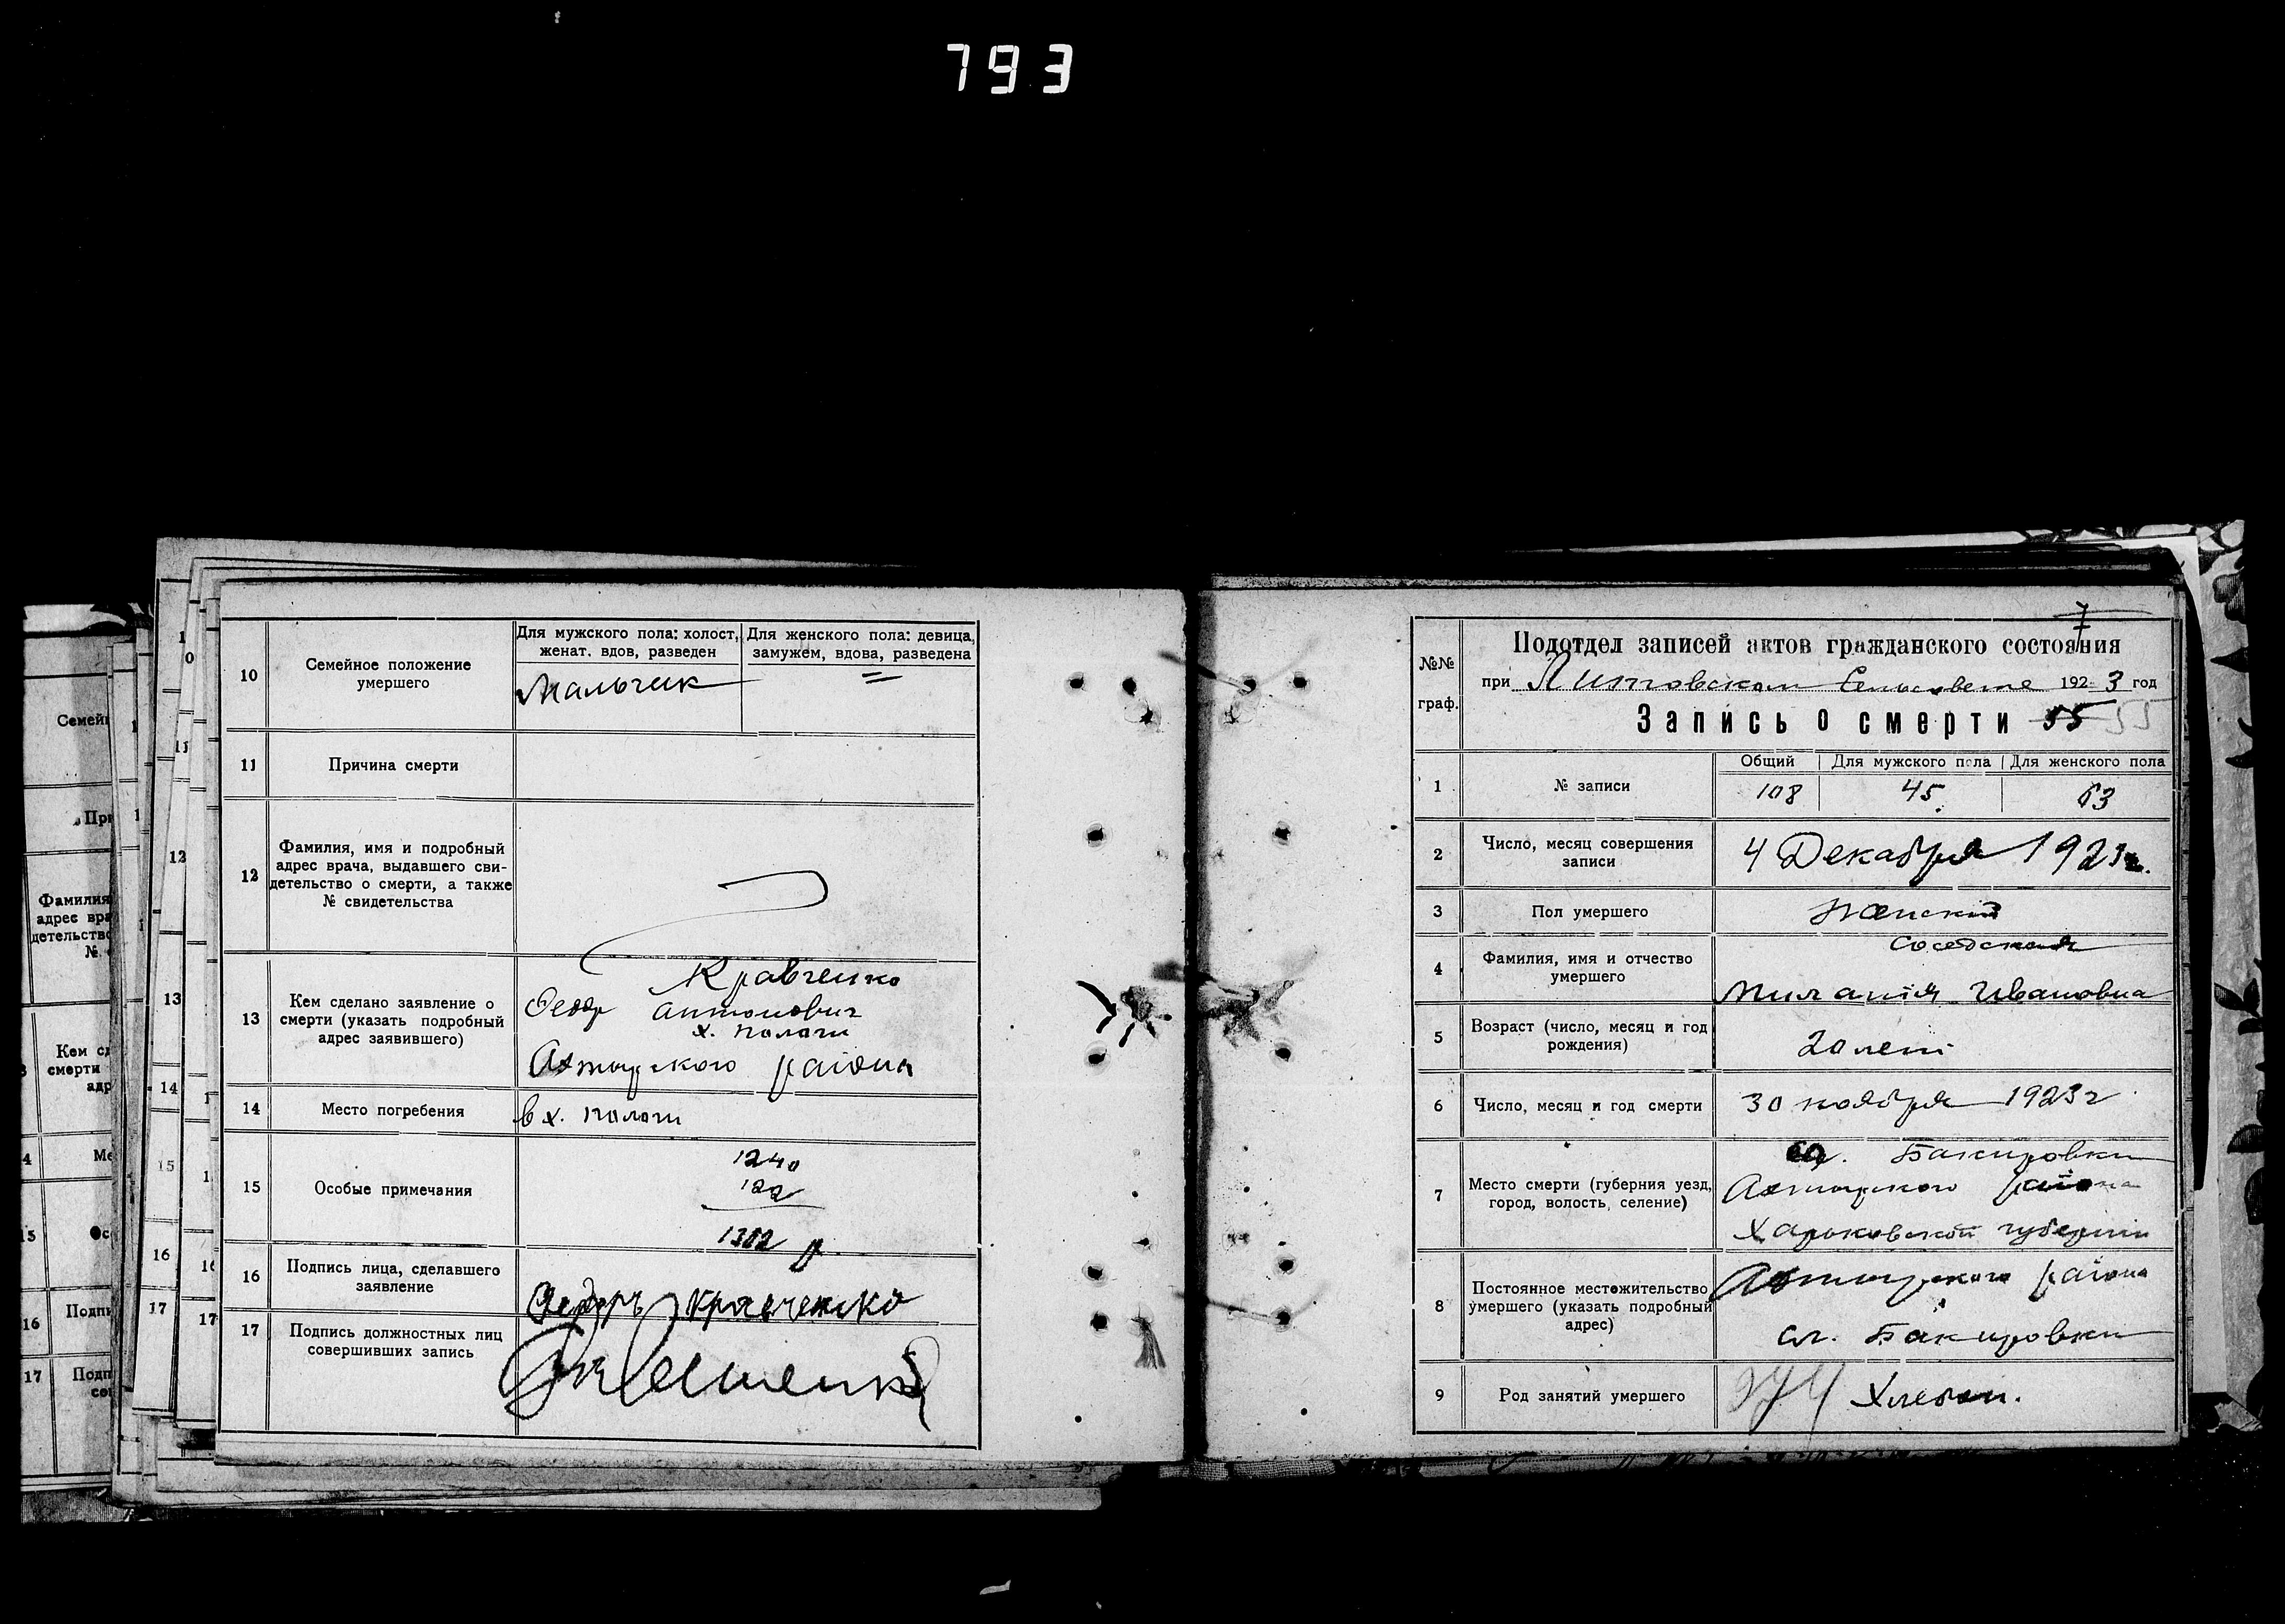 793
10
Семейное положение
умершего
Для мужского пола: холост,
женат. вдов, разведен
Для женского пола: девица,
замужем, вдова, разведена
Мальчик
=
11
Причина смерти
12
Фамилия, имя и подробный
адрес врача, выдавшего сви-
детельство о смерти, а также
№ свидетельства
13
Кем сделано заявление о
смерти (указать подробный
адрес заявившего)
Кравченко
Федор Антонович
х.
Ахтырского района
14
Место погребения
в х.
15
Особые примечания
1240
122
16
Подпись лица, сделавшего
заявление
Федоръ Кравченко
17
Подпись должностных лиц
совершивших запись
№№
граф.
Подотдел записей актов гражданского состояния
при Литовском Сельсовете 1923 год
Запись о смерти 55 55
1
№ записи
Общий
Для мужского пола
Для женского пола
108
45
63
2
Число, месяц совершения
записи
4 Декабря 1923 г.
3
Пол умершего
женский
4
Фамилия, имя и отчество
умершего
Миланія Ивановна
5
Возраст (число, месяц и год
рождения)
20 лет
6
Число, месяц и год смерти
30 ноября 1923 г
7
Место смерти (губерния уезд,
город, волость, селение)
Бакировки
Ахтырского района
Харьковской губернии
8
Постоянное местожительство
умершего (указать подробный
адрес)
Ахтырского района
сл. Бакировки
9
Род занятий умершего
Хлебоп.
12
13
14
15
16
17